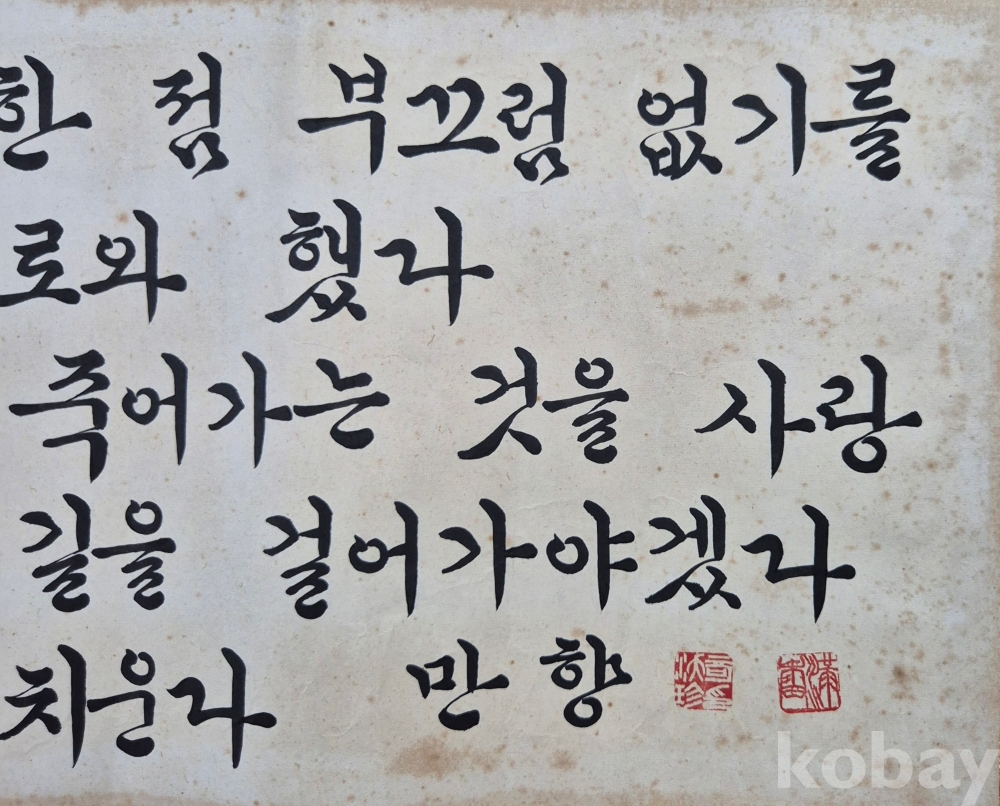 한 점 부끄럼 없기를
로와 했다
죽어가는 것을 사랑
길을 걸어가야겠다
치운다 만향
kobay